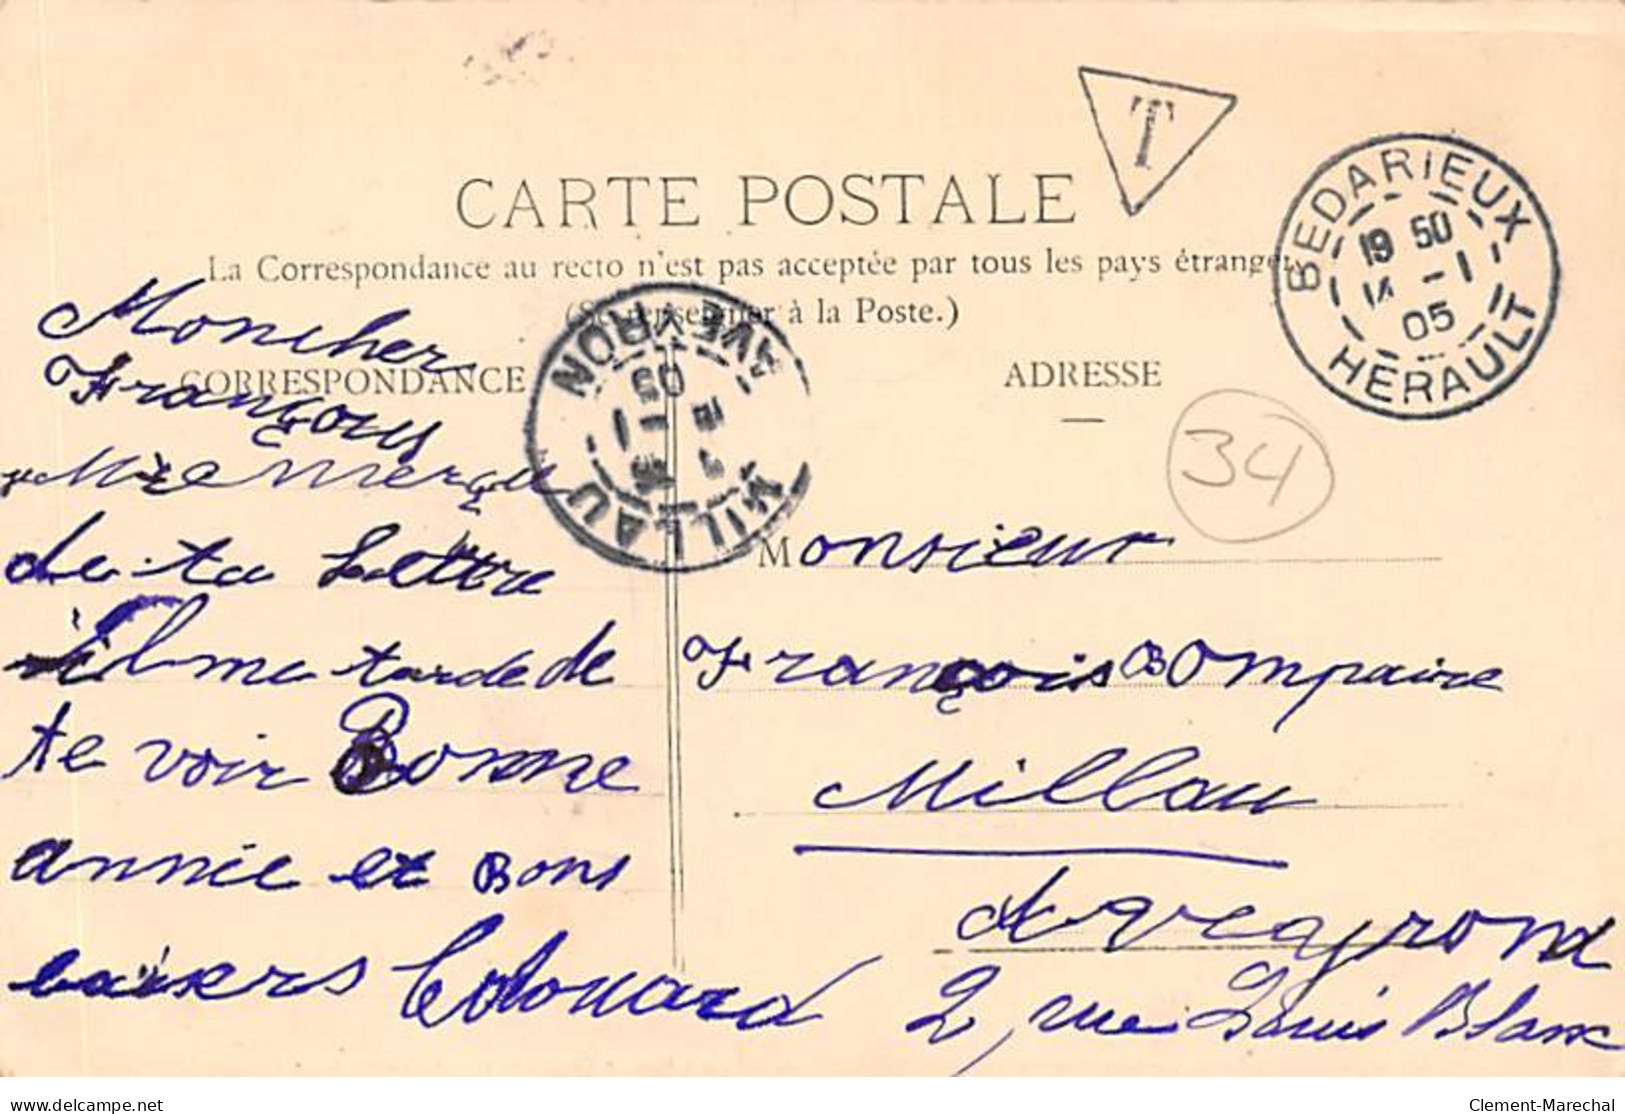 T
CARTE POSTALE
La Correspondance au recto n'est pas acceptée par tous les pays étrangers
(Se renseigner à la Poste.)
BEDARIEUX
19 50
14 - 1
05
HERAULT
CORRESPONDANCE
ADRESSE
MILLAU
AVEYRON
05
34
Moncher
François
Merçi
de ta Lettre
il me tarde de
te voir Bonne
annie et Bons
baisers Edouard
Monsieur
François Bompaire
Millau
Aveyrond
2, rue Louis Blanc
delcampe.net
Clement-Marechal